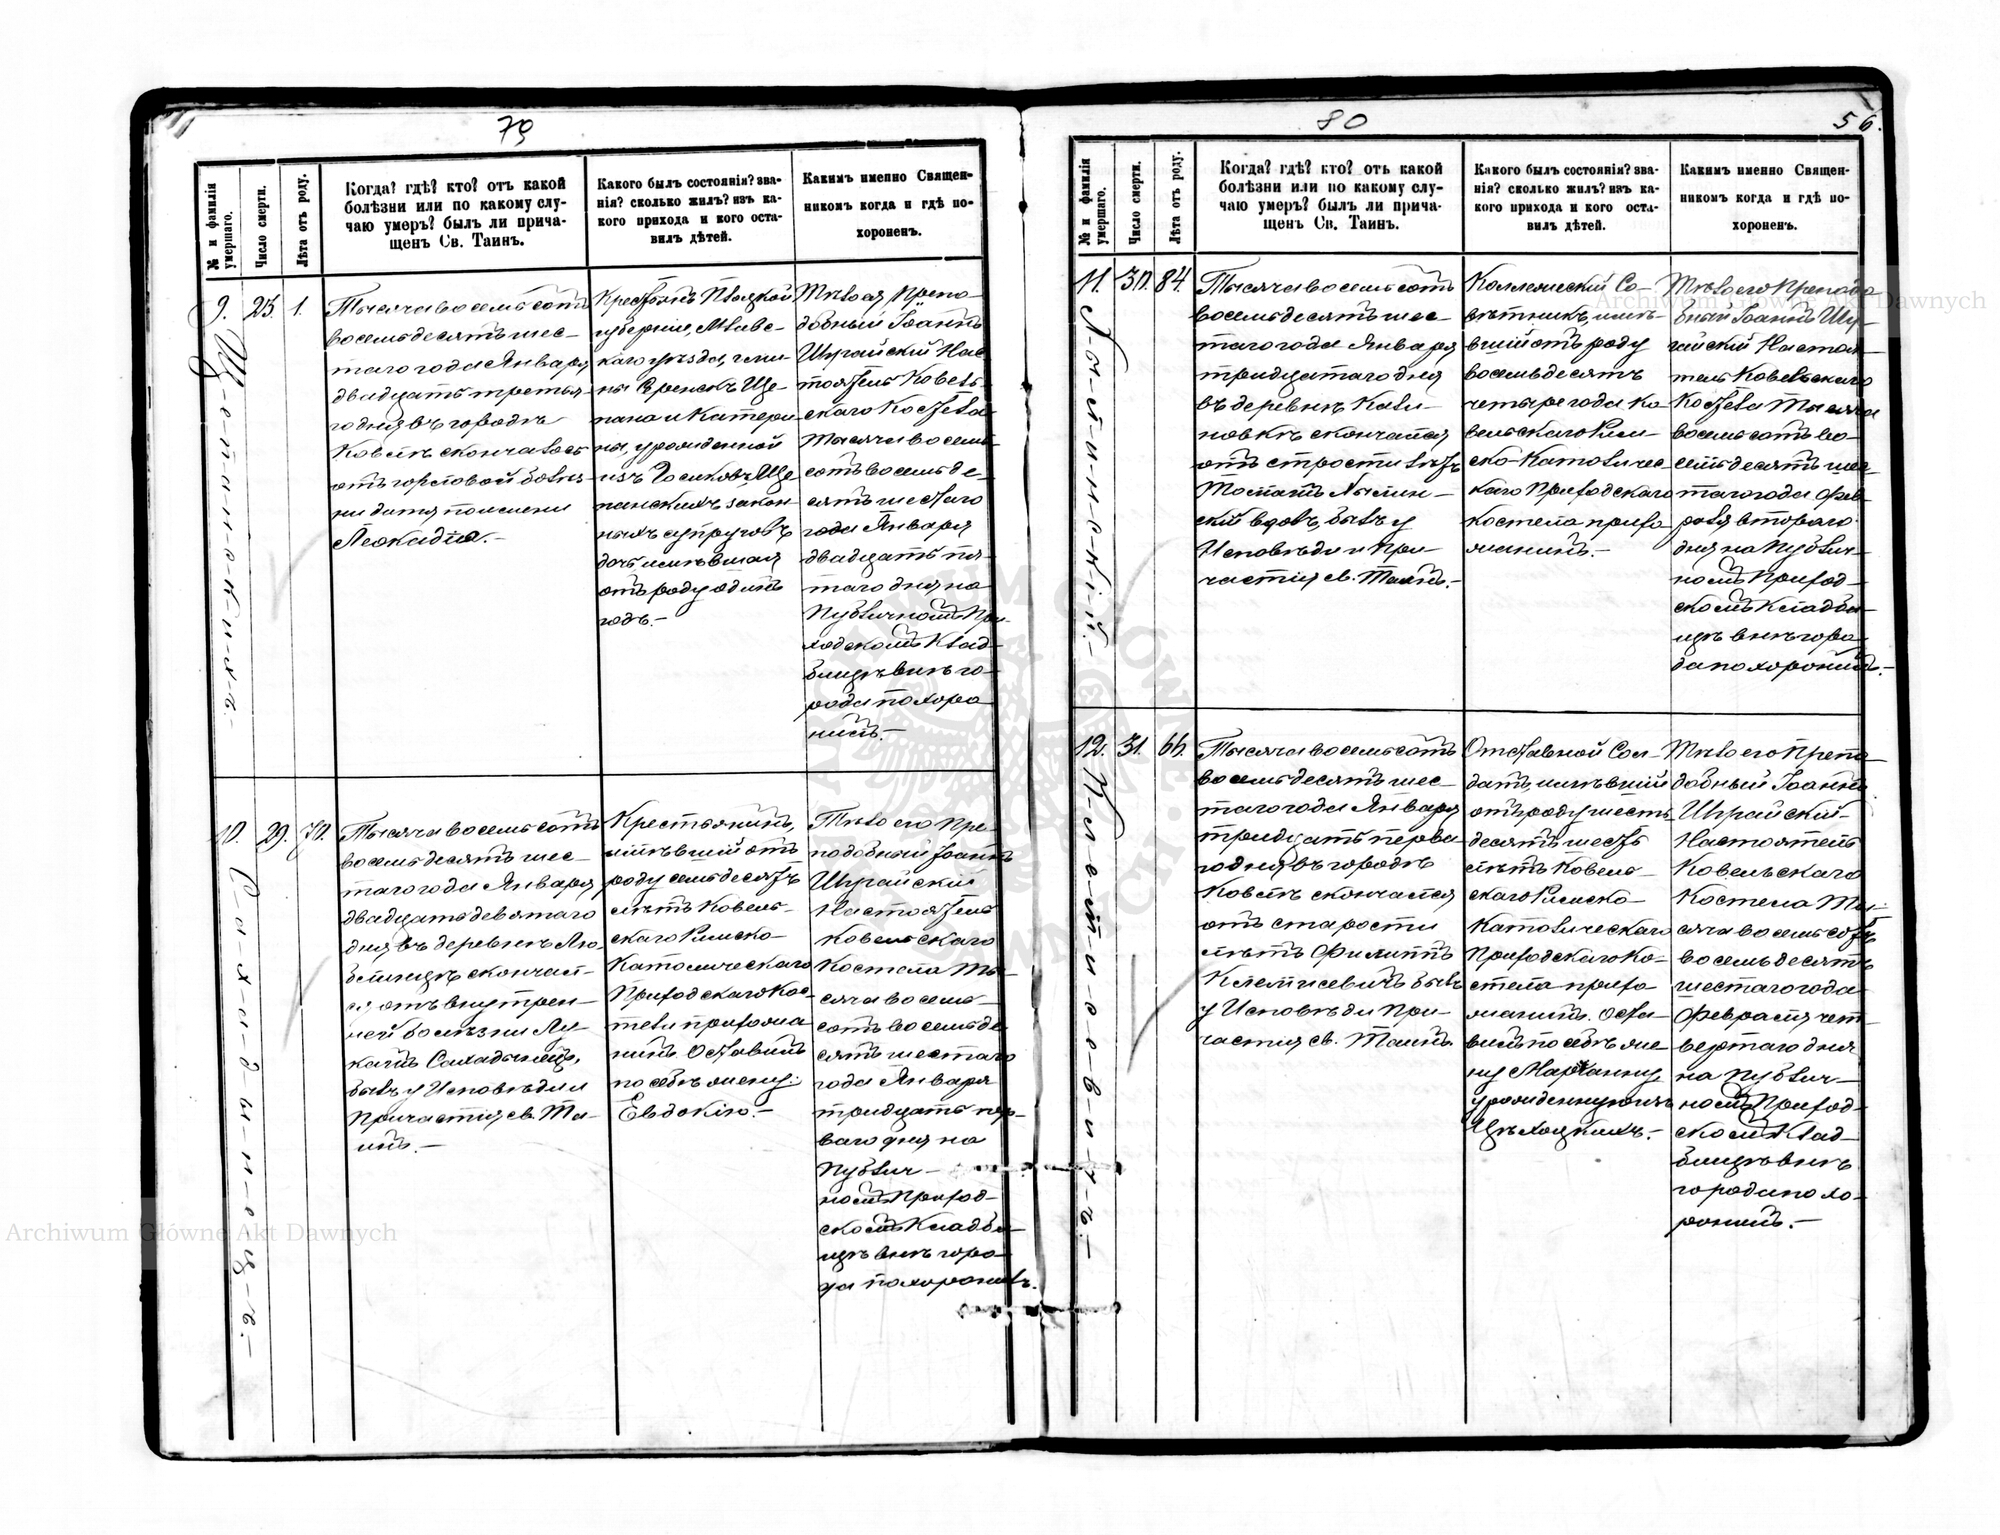 79
№ и фамилія умершаго.
Число смерти.
Лѣта отъ роду.
Когда? гдѣ? кто? отъ какой
болѣзни или по какому слу-
чаю умеръ? былъ ли прича-
щенъ Св. Таинъ.
Какого былъ состоянія? зва-
нія? сколько жилъ? изъ ка-
кого прихода и кого оста-
вилъ дѣтей.
Каким именно Священ-
никомъ когда и гдѣ по-
хороненъ.
9.
25.
1.
Тысяча восемьсотъ
восемьдесятъ шес-
таго года Января
двадцать третья-
го дня въ городѣ
Ковелѣ скончалось
отъ горловой болѣз-
ни дитя по имени
Леокадія.-
Крестьянъ
губерніи Млавс-
каго уѣзда, гми-
ны Ще-
пана и Катери-
ны, урожденной
изъ Ще-
панскихъ закон-
ныхъ супруговъ
дочь имѣвшая
отъ роду одинъ
годъ.-
Тѣло ея Препо-
добный Іоаннъ
Шурайскій Нас-
тоятель Ковель-
скаго Костела
Тысяча восемь-
сотъ восемьде-
сятъ шестаго
года Января
двадцать пя-
таго дня на
Публичномъ При-
ходскомъ Клад-
бищѣ внѣ го-
рода похоро-
нилъ.-
10.
29.
70.
Тысяча восемьсотъ
восемьдесятъ шес-
таго года Января
двадцать девятаго
дня въ деревнѣ Лю-
блинцѣ скончал-
ся отъ внутрен-
ней болѣзни Лу-
кашъ
бывъ у Исповѣди и
Причастія св. Та-
инъ.-
Крестьянинъ,
имѣвшій отъ
роду семьдесятъ
лѣтъ Ковель-
скаго Римско-
Католическаго
Приходскаго Кос-
тела прихожа-
нинъ. Оставилъ
по себѣ жену:
Евдокію.-
Тѣло его Пре-
подобный Іоаннъ
Шурайскій
Настоятель
Ковельскаго
Костела Ты-
сяча восемь-
сотъ восемьде-
сятъ шестаго
года Января
тридцать пер-
ваго дня на
Публич-
номъ Приход-
скомъ Кладби-
щѣ внѣ горо-
да похоронилъ.
80
56.
№ и фамилія умершаго.
Число смерти.
Лѣта отъ роду.
Когда? гдѣ? кто? отъ какой
болѣзни или по какому слу-
чаю умеръ? былъ ли прича-
щенъ Св. Таинъ.
Какого былъ состоянія? зва-
нія? сколько жилъ? изъ ка-
кого прихода и кого оста-
вилъ дѣтей.
Каким именно Священ-
никомъ когда и гдѣ по-
хороненъ.
11.
30.
84.
Тысяча восемьсотъ
восемьдесятъ шес-
таго года Января
тридцатаго дня
въ деревнѣ Кали-
новкѣ скончался
отъ старости лѣтъ
вдовъ бывъ у
Исповѣди и При-
частія св. Таинъ.-
Коллежскій Со-
вѣтникъ, имѣ-
вшій отъ роду
восемьдесятъ
четыре года Ко-
вельскаго Рим-
ско-Католичес-
каго Приходскаго
костела прихо-
жанинъ.-
Тѣло его Преподо-
бный Іоаннъ Шу-
райскій Настоя-
тель Ковельскаго
Костела Тысяча
восемьсотъ во-
семьдесятъ шес-
таго года Фев-
раля втораго
дня на Публич-
номъ Приход-
скомъ Кладби-
щѣ внѣ горо-
да похоронилъ.-
12.
31.
66.
К-л-е-м-и-с-е-в-и-ч-ъ.-
Тысяча восемьсотъ
восемьдесятъ шес-
таго года Января
тридцать перва-
го дня въ городѣ
Ковелѣ скончался
отъ старости
лѣтъ Филиппъ
Клемисевичъ бывъ
у Исповѣди При-
частія св. Таинъ.
Отставной Сол-
датъ, имѣвшій
отъ роду шесть-
десятъ шесть
лѣтъ Ковель-
скаго Римско-
Католическаго
Приходскаго Ко-
стела прихо-
жанинъ. Оста-
вилъ по себѣ же-
ну Маріанну,
урожденную изъ
Цѣхоцкихъ.-
Тѣло его Препо-
добный Іоаннъ
Шурайскій-
Настоятель
Ковельскаго
Костела Ты-
сяча восемьсотъ
восемьдесятъ
шестаго года
Февраля чет-
вертаго дня
на Публич-
номъ Приход-
скомъ Клад-
бищѣ внѣ
города похо-
ронилъ.-
Archiwum Główne Akt Dawnych
Archiwum Główne Akt Dawnych